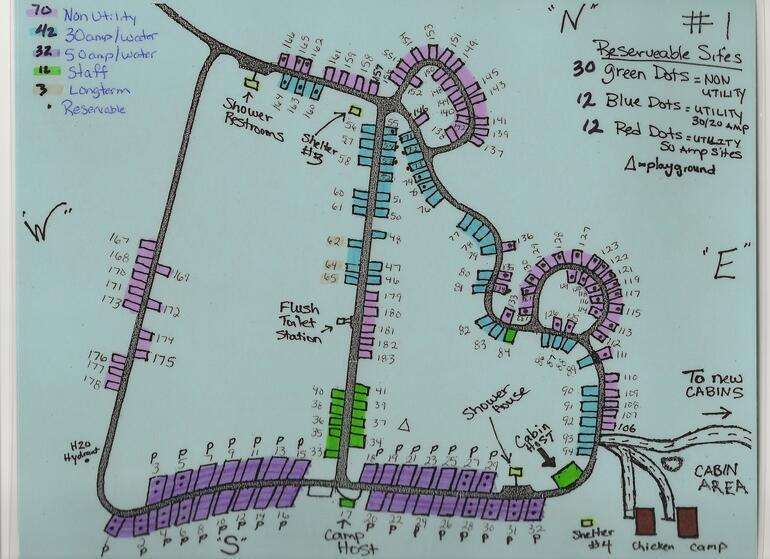 70 Non Utility
42 30amp/water
32 50amp/water
12 Staff
3 Longterm
• Reservable
"N"
#1
Reserveable Sites
30 green Dots = NON
UTILITY
12 Blue Dots = UTILITY
30/20 AMP
12 Red Dots = UTILITY
50 Amp Sites
△=playground
"W"
"E"
"S"
166
165
162
161
159
158
157
164
163
160
Shower
Restrooms
Shelter
#3
153
151
149
145
143
141
139
137
152
146
56
57
58
60
61
62
64
65
55
51
50
48
47
46
74
76
77
79
80
81
82
83
84
136
135
133
129
128
127
123
122
121
119
117
115
113
112
111
110
109
108
107
106
90
91
92
93
94
167
168
170
171
173
169
172
174
175
176
177
178
179
180
181
182
183
Flush
Toilet
Station
40
38
36
35
33
41
39
37
34
H2O
Hydrant
P P P P P P
3 5 7 9 11 13 15
2 4 6 8 10 12 14 16
P P P P P P P P
18 19 21 23 25 27 29
20 22 24 26 28 30 31 32
17
Camp
Host
Shower
House
Cabin
Host
To new
CABINS
CABIN
AREA
Shelter
#4
Chicken Camp